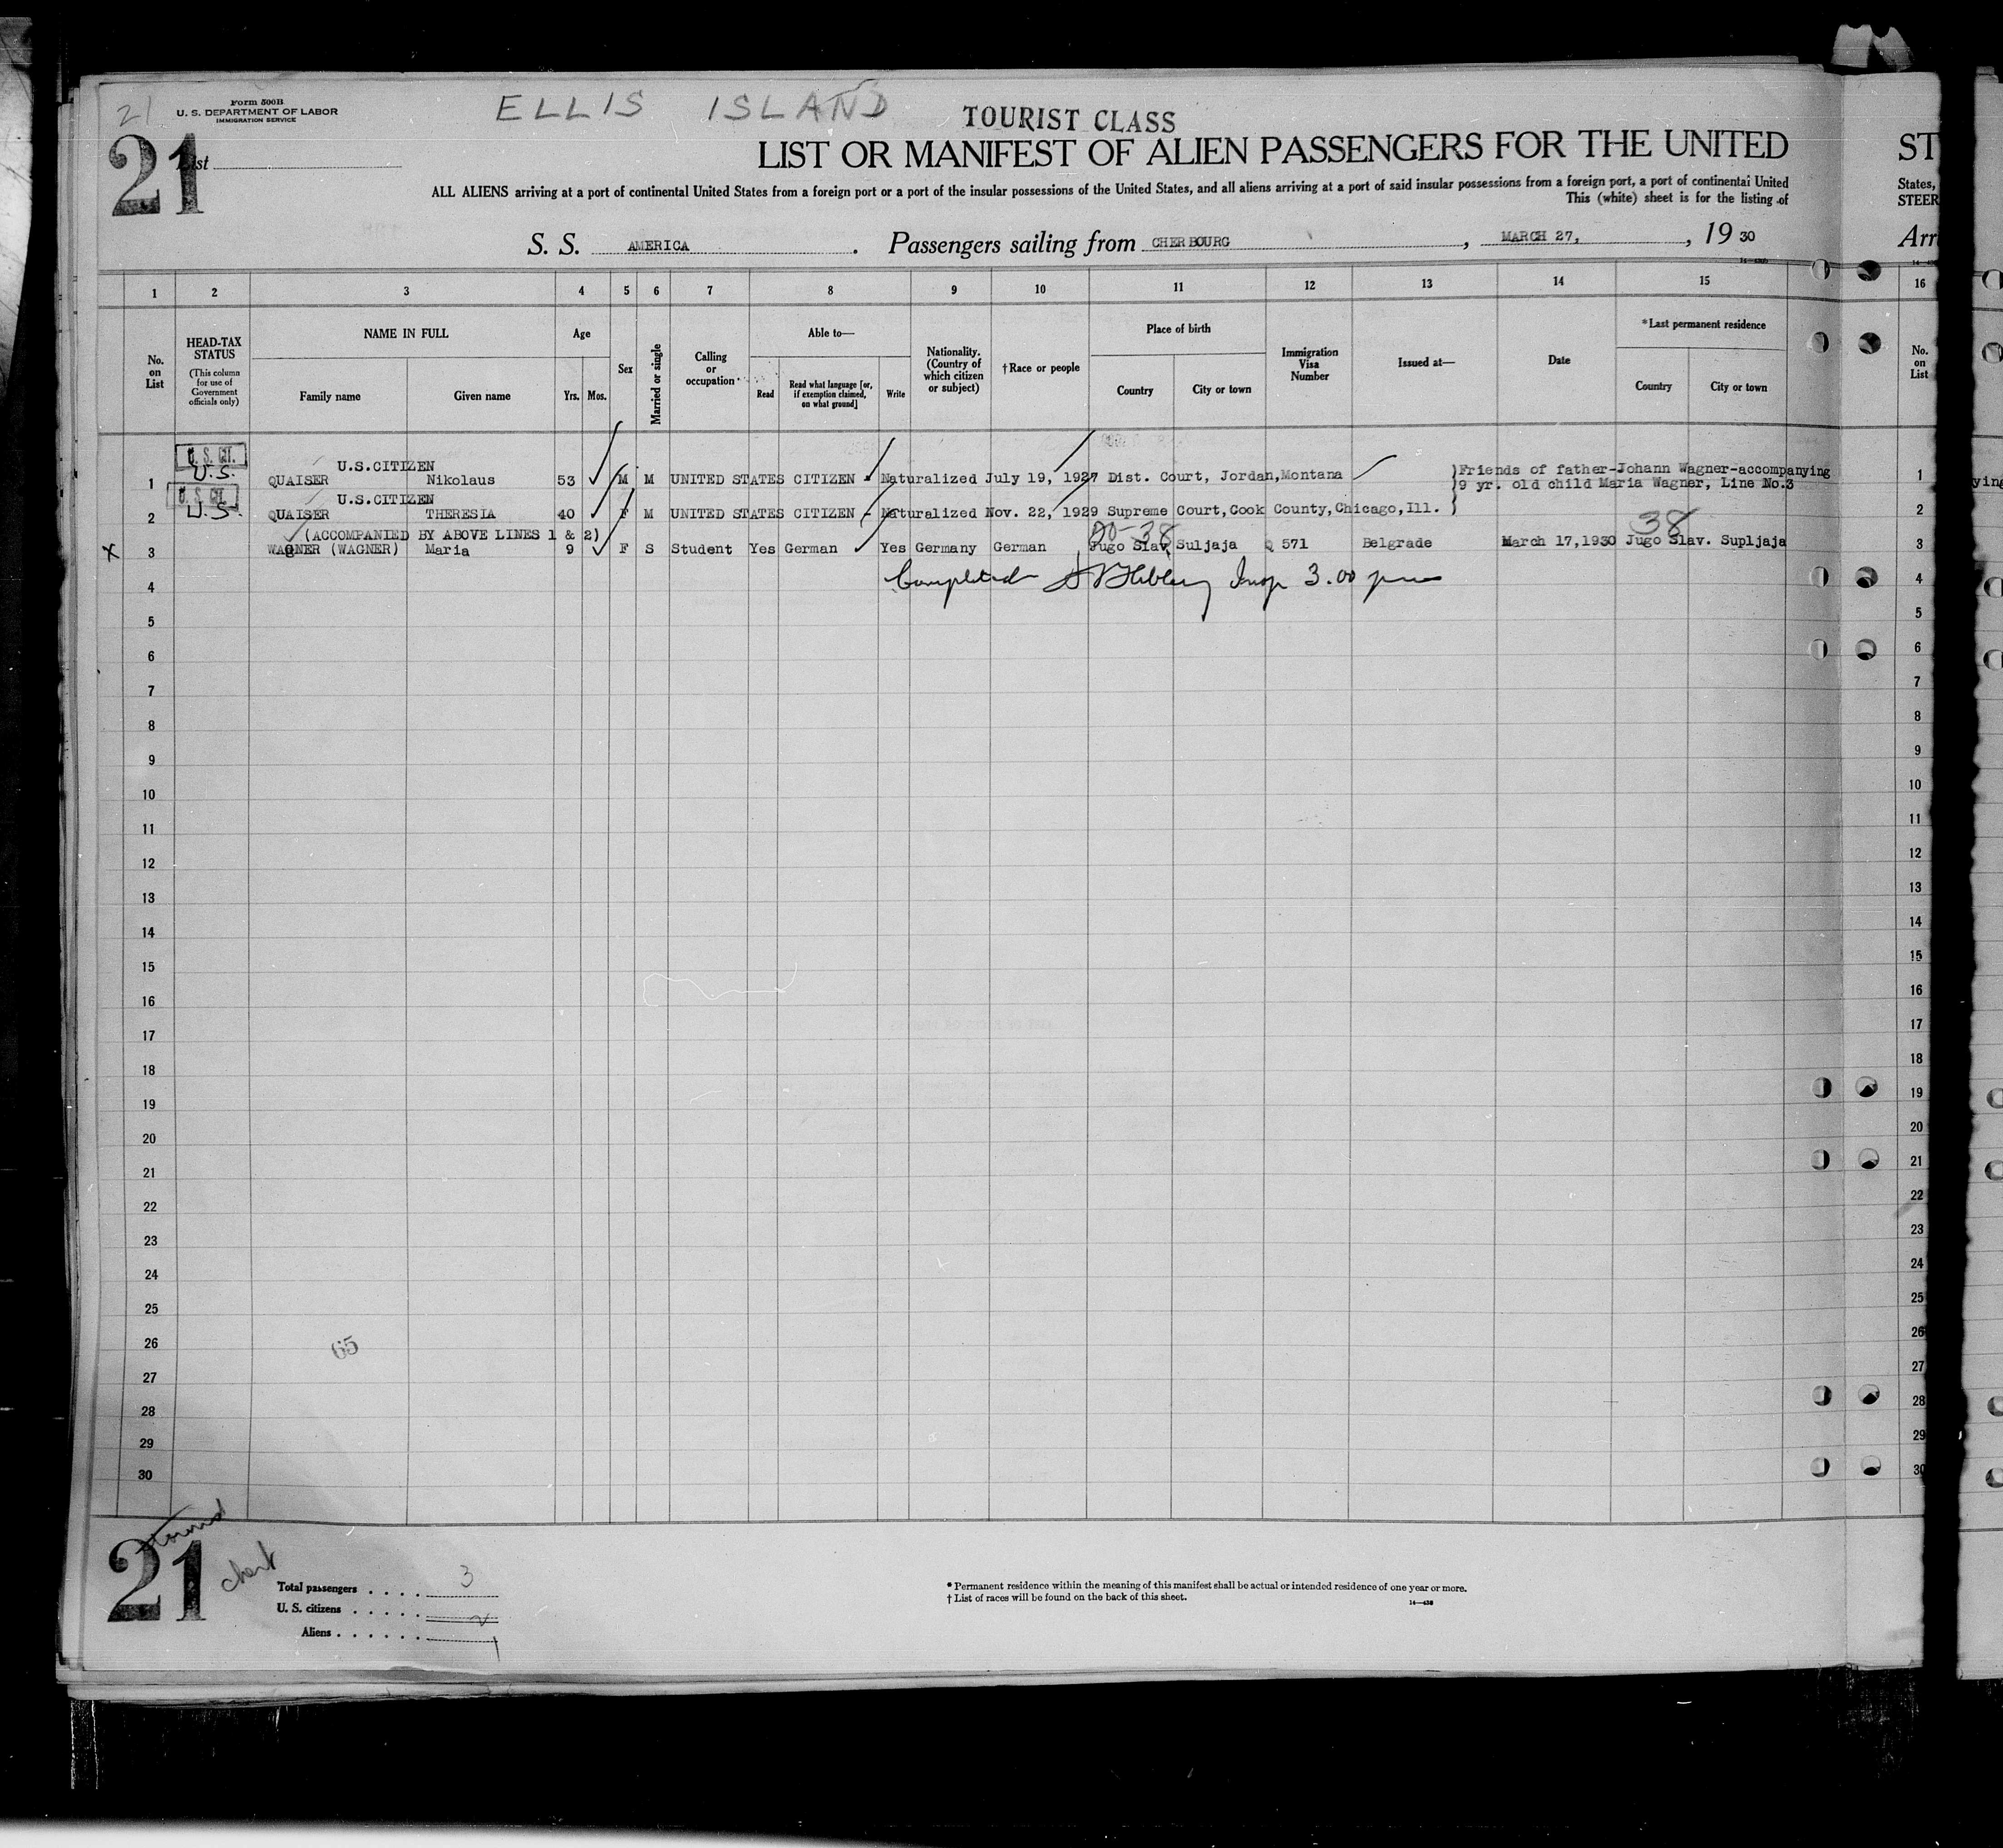 21
Form 500B
U. S. DEPARTMENT OF LABOR
IMMIGRATION SERVICE
ELLIS ISLAND
TOURIST CLASS
21
List
LIST OR MANIFEST OF ALIEN PASSENGERS FOR THE UNITED
ST
ALL ALIENS arriving at a port of continental United States from a foreign port or a port of the insular possessions of the United States, and all aliens arriving at a port of said insular possessions from a foreign port, a port of continental United
States,
This (white) sheet is for the listing of
STEER
S. S. AMERICA . Passengers sailing from CHERBOURG , MARCH 27, , 19 30
Arr
1 2 3 4 5 6 7 8 9 10 11 12 13 14 15 16
No. on List
HEAD-TAX STATUS (This column for use of Government officials only)
NAME IN FULL
Family name Given name
Age
Yrs. Mos.
Sex
Married or single
Calling or occupation
Able to—
Read
Read what language [or, if exemption claimed, on what ground]
Write
Nationality. (Country of which citizen or subject)
†Race or people
Place of birth
Country City or town
Immigration Visa Number
Issued at—
Date
*Last permanent residence
Country City or town
No. on List
U. S. CIT.
U.S.CITIZEN
U.S.
1 QUAISER Nikolaus 53 M M UNITED STATES CITIZEN - Naturalized July 19, 1927 Dist. Court, Jordan,Montana 1
Friends of father-Johann Wagner-accompanying
9 yr. old child Maria Wagner, Line No.3
ying
U. S. CIT.
U.S.CITIZEN
U.S.
2 QUAISER THERESIA 40 F M UNITED STATES CITIZEN - Naturalized Nov. 22, 1929 Supreme Court,Cook County,Chicago,Ill. 2
(ACCOMPANIED BY ABOVE LINES 1 & 2)
00-38
38
X 3 WAGNER (WAGNER) Maria 9 F S Student Yes German Yes Germany German Jugo Slav. Suljaja Q 571 Belgrade March 17,1930 Jugo Slav. Supljaja 3
4 Completed Insp 3.00 pm 4
5 5
6 6
7 7
8 8
9 9
10 10
11 11
12 12
13 13
14 14
15 15
16 16
17 17
18 18
19 19
20 20
21 21
22 22
23 23
24 24
25 25
26 65 26
27 27
28 28
29 29
30 30
21
Total passengers . . . . 3
U. S. citizens . . . . . 2
Aliens . . . . . . 1
* Permanent residence within the meaning of this manifest shall be actual or intended residence of one year or more.
† List of races will be found on the back of this sheet.
14—438